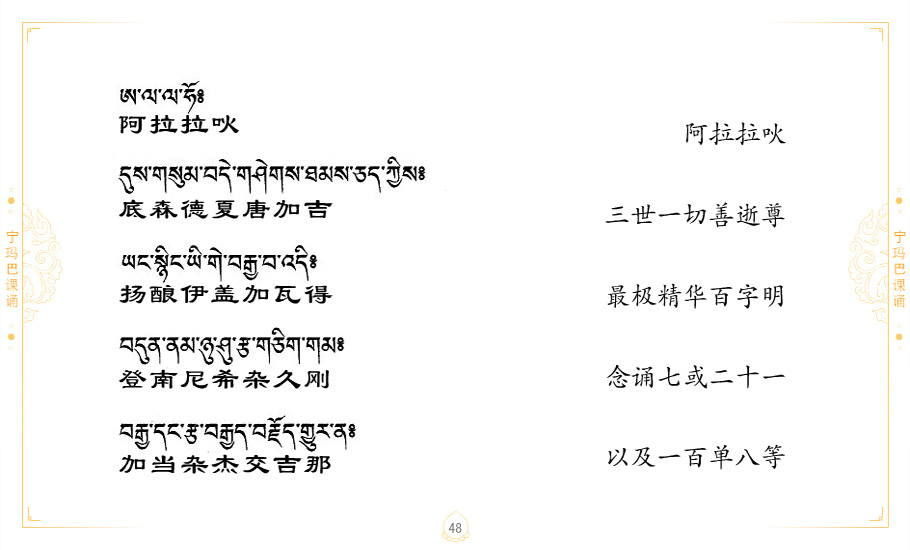 ཨ་ལ་ལ་ཧོ༔
阿拉拉吙
阿拉拉吙
དུས་གསུམ་བདེ་གཤེགས་ཐམས་ཅད་ཀྱིས༔
底森德夏唐加吉
三世一切善逝尊
ཡང་སྙིང་ཡི་གེ་བརྒྱ་བ་འདི༔
扬酿伊盖加瓦得
最极精华百字明
བདུན་ནམ་ཉུ་ཤུ་རྩ་གཅིག་གམ༔
登南尼希杂久刚
念诵七或二十一
བརྒྱ་དང་རྩ་བརྒྱད་བརྗོད་གྱུར་ན༔
加当杂杰交吉那
以及一百单八等
宁玛巴课诵
宁玛巴课诵
48